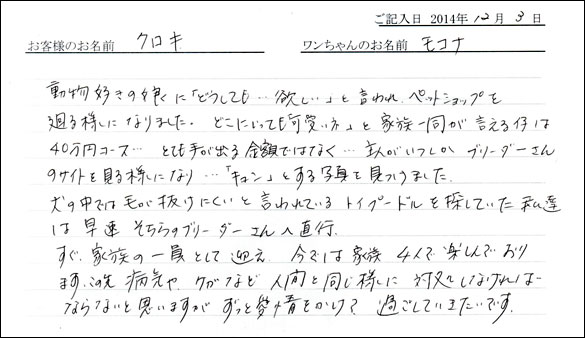 ご記入日 2014年 12月 3日
お客様のお名前 クロキ ワンちゃんのお名前 モコナ
動物好きの娘に「どうしても…欲しい」と言われ、ペットショップを
廻る様になりました。どこにいっても「可愛い♡」と家族一同が言える仔は
40万円コース… とても手が出る金額ではなく… 主人がいつしか ブリーダーさん
のサイトを見る様になり… 「キュン」とする写真を見つけました。
犬の中では毛が抜けにくいと言われている トイプードルを探していた私達
は 早速 そちらのブリーダーさんへ直行。
すぐ、家族の一員として迎え、今では家族 4人で楽しんでおり
ます。この先 病気や ケガなど 人間と同じ様に 対処しなければ
ならないと思いますが ずっと愛情をかけて 過ごしていきたいです。